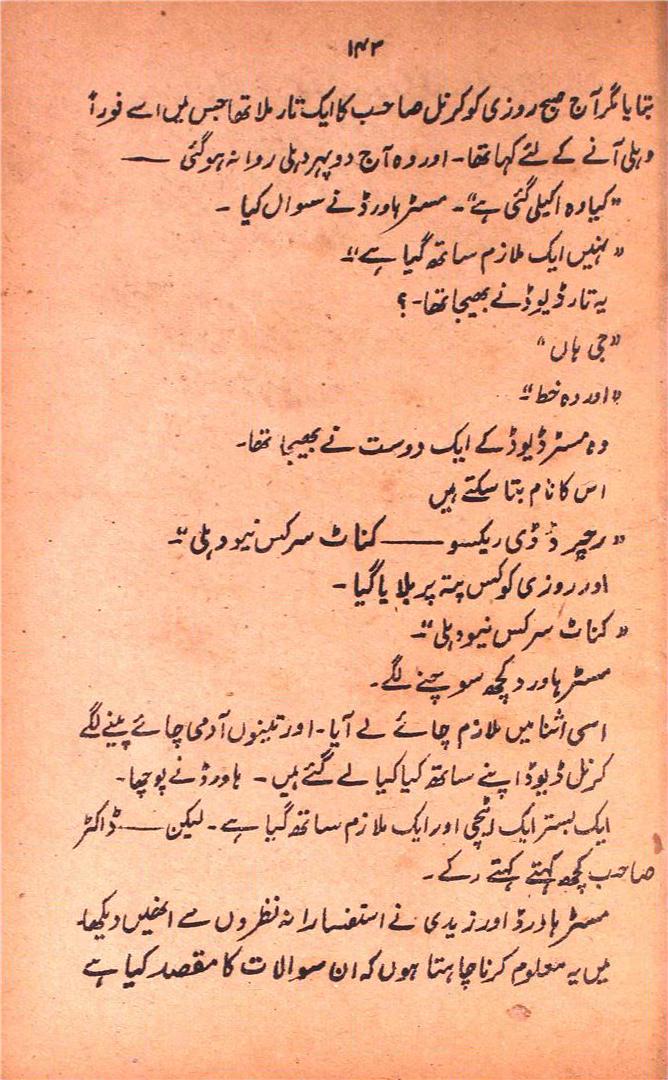 ۱۴۳
بتایا مگر آج صبح روزی کو کرنل صاحب کا ایک تار ملا تھا جس میں اسے فوراً
دہلی آنے کے لئے کہا تھا۔ اور وہ آج دوپہر دہلی روانہ ہو گئی ——
"کیا وہ اکیلی گئی ہے"۔ مسٹر ہاورڈ نے سوال کیا۔
"نہیں ایک ملازم ساتھ گیا ہے"۔
یہ تار ڈیوڈ نے بھیجا تھا۔؟
"جی ہاں"
"اور وہ خط"۔
وہ مسٹر ڈیوڈ کے ایک دوست نے بھیجا تھا۔
اس کا نام بتا سکتے ہیں
"رچرڈ ڈی ریکسو —— کناٹ سرکس نیو دہلی"۔
اور روزی کو کس پتہ پر بلایا گیا۔
"کناٹ سرکس نیو دہلی"۔
مسٹر ہاورد کچھ سوچنے لگے۔
اسی اثنا میں ملازم چائے لے آیا۔ اور تینوں آدمی چائے پینے لگے
کرنل ڈیوڈ اپنے ساتھ کیا کیا لے گئے ہیں۔ ہاورڈ نے پوچھا۔
ایک بستر ایک اٹیچی اور ایک ملازم ساتھ گیا ہے۔ لیکن —— ڈاکٹر
صاحب کچھ کہتے کہتے رکے۔
مسٹر ہاورڈ اور زیدی نے استفسارانہ نظروں سے انھیں دیکھا۔
میں یہ معلوم کرنا چاہتا ہوں کہ ان سوالات کا مقصد کیا ہے